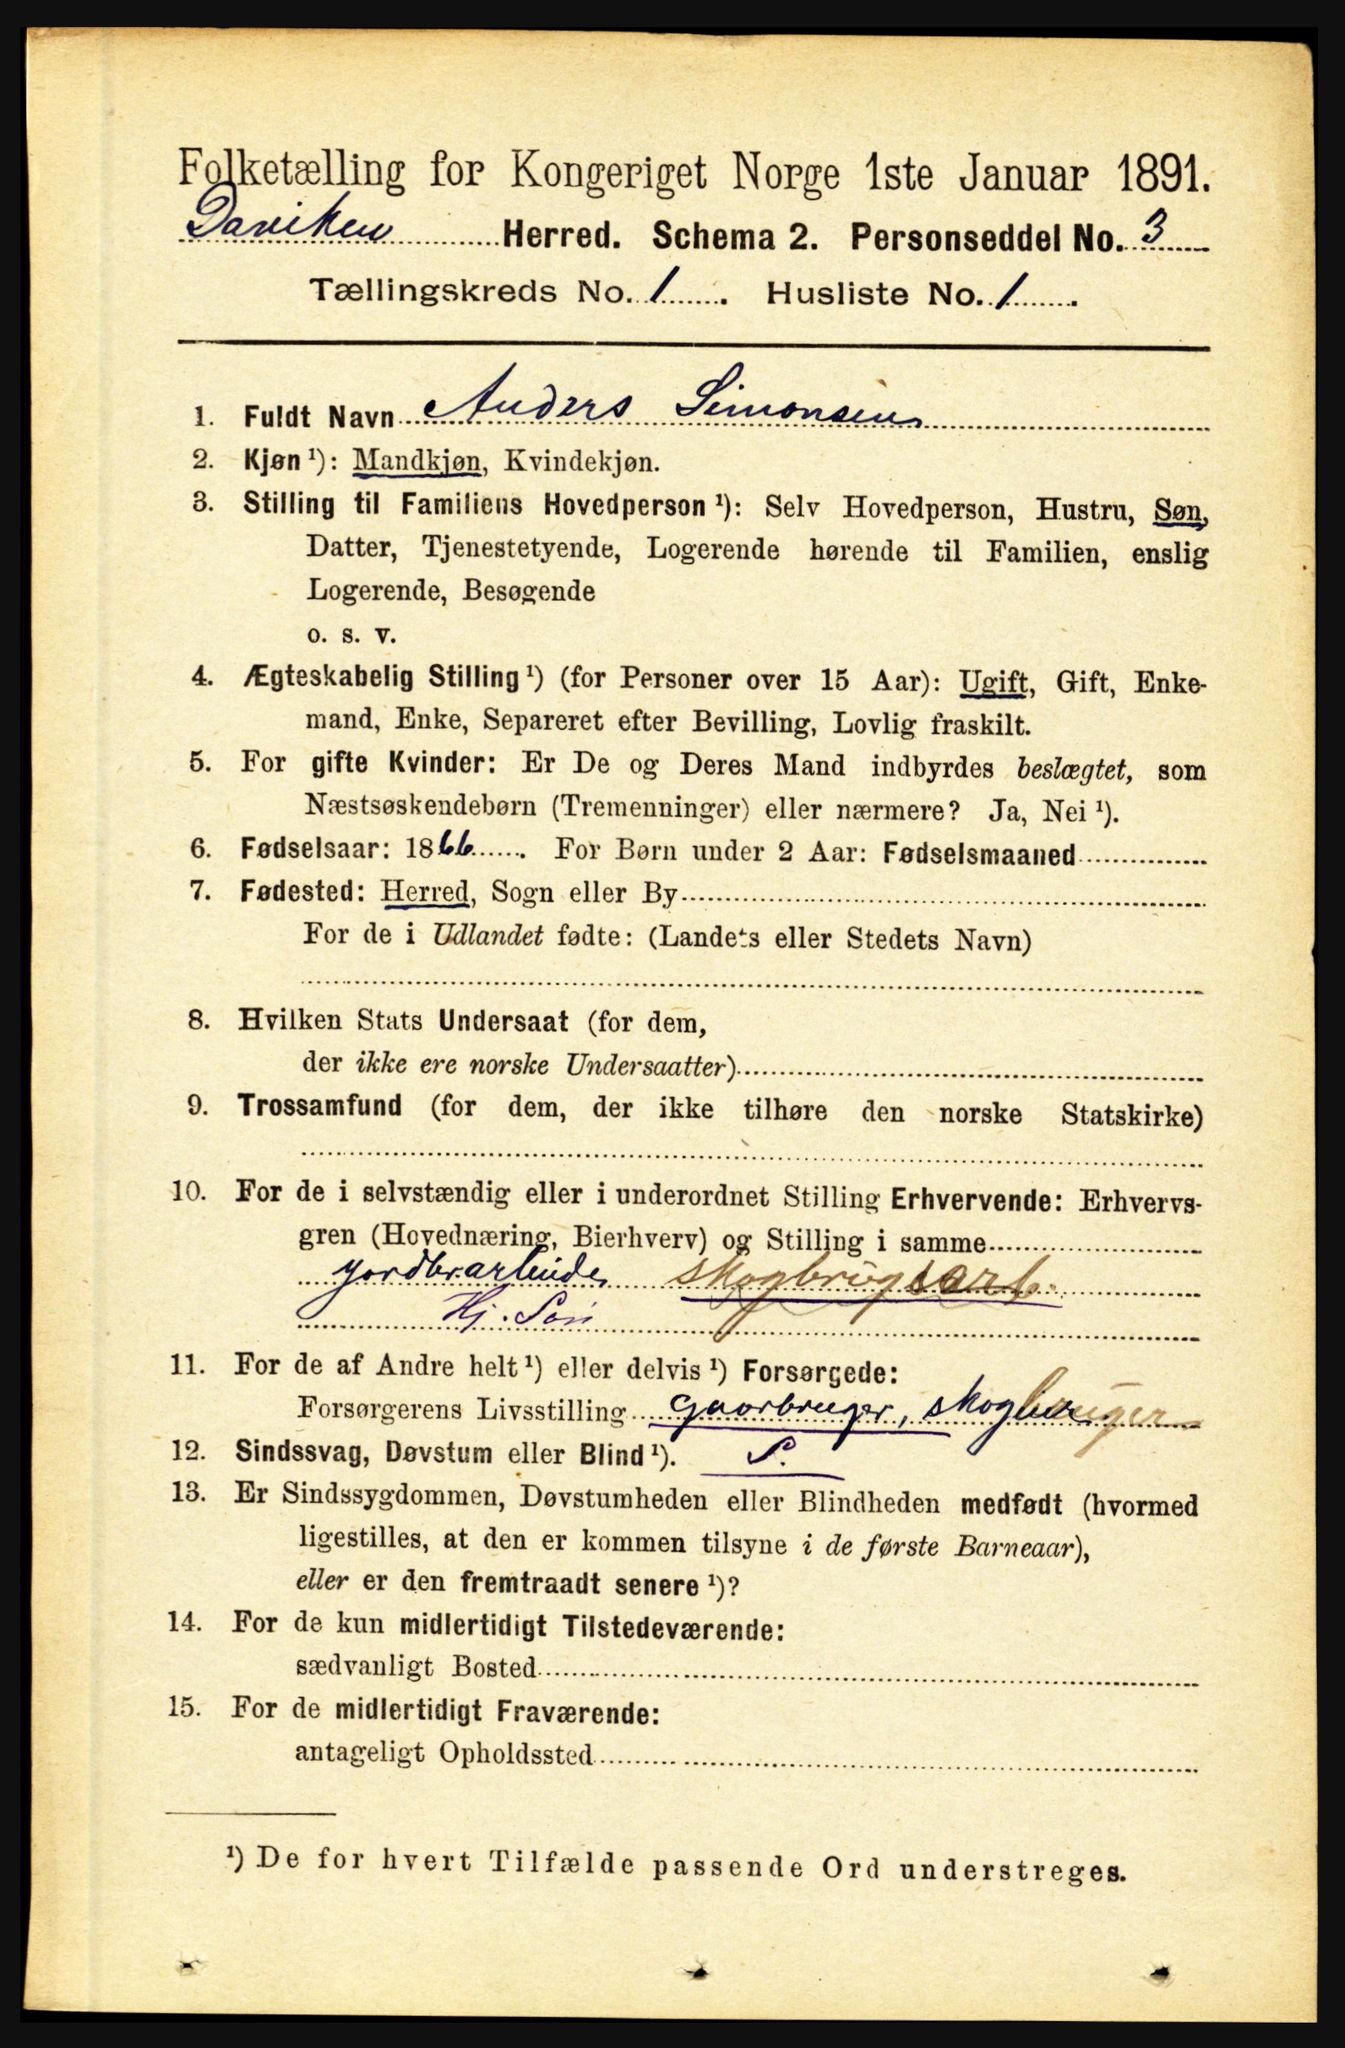 Folketælling for Kongeriget Norge 1ste Januar 1891.
Daviken Herred. Schema 2. Personseddel No. 3
Tællingskreds No. 1. Husliste No. 1.
1. Fuldt Navn Anders Simonsen
2. Kjøn ¹): Mandkjøn, Kvindekjøn.
3. Stilling til Familiens Hovedperson ¹): Selv Hovedperson, Hustru, Søn,
Datter, Tjenestetyende, Logerende hørende til Familien, enslig
Logerende, Besøgende
o. s. v.
4. Ægteskabelig Stilling ¹) (for Personer over 15 Aar): Ugift, Gift, Enke-
mand, Enke, Separeret efter Bevilling, Lovlig fraskilt.
5. For gifte Kvinder: Er De og Deres Mand indbyrdes beslægtet, som
Næstsøskendebørn (Tremenninger) eller nærmere? Ja, Nei ¹).
6. Fødselsaar: 1866. For Børn under 2 Aar: Fødselsmaaned
7. Fødested: Herred, Sogn eller By
For de i Udlandet fødte: (Landets eller Stedets Navn)
8. Hvilken Stats Undersaat (for dem,
der ikke ere norske Undersaatter)
9. Trossamfund (for dem, der ikke tilhøre den norske Statskirke)
10. For de i selvstændig eller i underordnet Stilling Erhvervende: Erhvervs-
gren (Hovednæring, Bierhverv) og Stilling i samme
jordbr.arbeide skogbrugsarb.
Hj. Søn
11. For de af Andre helt ¹) eller delvis ¹) Forsørgede:
Forsørgerens Livsstilling gaarbruger, skogbruger
12. Sindssvag, Døvstum eller Blind ¹). S.
13. Er Sindssygdommen, Døvstumheden eller Blindheden medfødt (hvormed
ligestilles, at den er kommen tilsyne i de første Barneaar),
eller er den fremtraadt senere ¹)?
14. For de kun midlertidigt Tilstedeværende:
sædvanligt Bosted
15. For de midlertidigt Fraværende:
antageligt Opholdssted
¹) De for hvert Tilfælde passende Ord understreges.